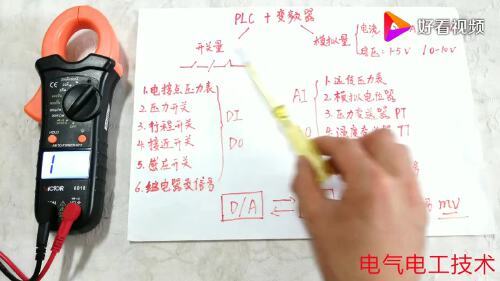 好看视频
PLC + 变频器
开关量
模拟量
电流
电压:1-5V / 0-10V
1.电接点压力表
2.压力开关
3.行程开关
4.接近开关
5.感应开关
6.继电器发信号
DI
DO
AI
1.远传压力表
2.模拟电位器
3.压力变送器 PT
4.温度变送器 TT
D/A
mV
HOLD
VICTOR 6018
电气电工技术